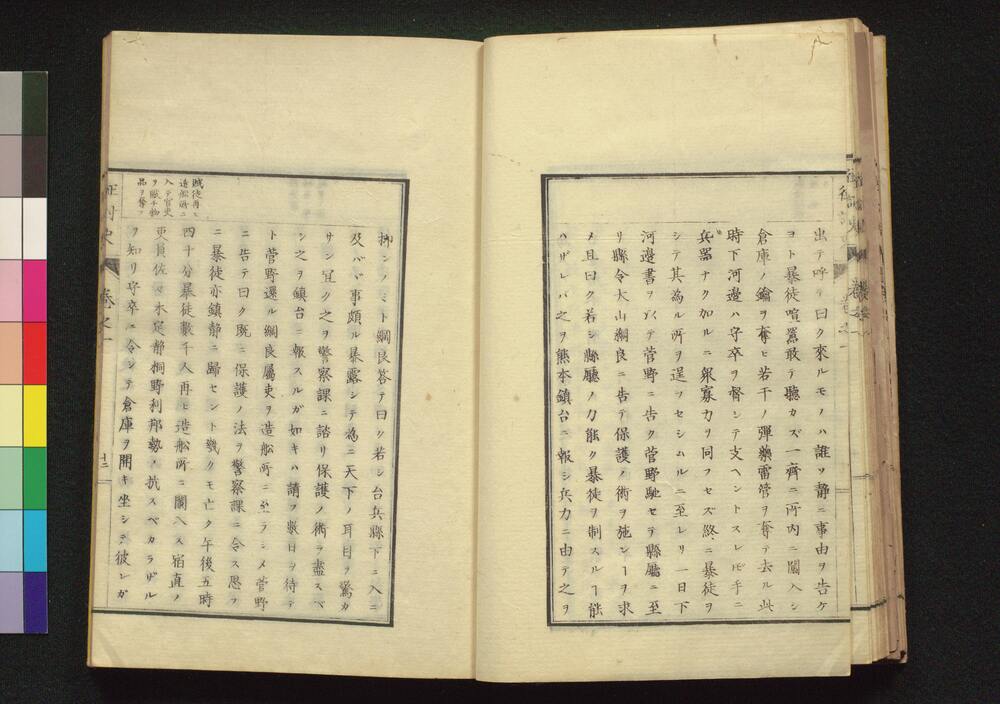 出テ呼テ曰ク來ルモノハ誰ソ靜ニ事由ヲ告ケ
ヨト暴徒喧囂敢テ聽カズ一齊ニ所内ニ闖入シ
倉庫ノ鑰ヲ奪ヒ若干ノ彈藥雷管ヲ奪テ去ル此
時下河邊ハ守卒ヲ督シテ支ヘントスレ𪜈手ニ
兵器ナク加ルニ衆寡力ヲ同フセズ終ニ暴徒ヲ
シテ其為ル所ヲ逞フセシムルニ至レリ一日下
河邊書ヲ以テ菅野ニ告ク菅野馳セテ縣廳ニ至
リ縣令大山綱良ニ告テ保護ノ術ヲ施シヿヲ求
メ且曰ク若シ縣廳ノ力能ク暴徒ヲ制スルヿ能
ハザレバ之ヲ熊本鎮台ニ報シ兵力ニ由テ之ヲ
賊徒再ヒ
造船所ニ
入テ官吏
ヲ
品ヲ奪フ
押ンノミト綱良答テ曰ク若シ台兵縣下ニ入ニ
及バヾ事頗ル暴露シテ為ニ天下ノ耳目ヲ驚カ
サン宜ク之ヲ警察課ニ諮リ保護ノ術ヲ盡スベ
シ之ヲ鎮台ニ報スルガ如キハ請フ數日ヲ待テ
ト菅野還ル綱良屬吏ヲ造船所ニ至ラシメ菅野
ニ告テ曰ク既ニ保護ノ法ヲ警察課ニ令ス思フ
ニ暴徒亦鎮靜ニ歸セント幾クモ亡ク午後五時
四十分暴徒數千人再ヒ造船所ニ闖入ス宿直ノ
吏員佐々木定靜桐野利邦勢ノ抗スベカラザル
ヲ知リ守卒ニ令シテ倉庫ヲ開キ坐シテ彼レガ
征討史
卷之一
十二